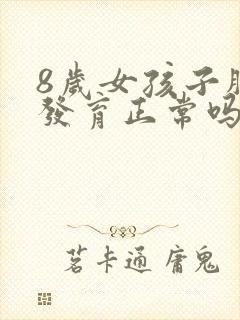 8歲女孩子
發育正常吗
茗卡通 庸鬼